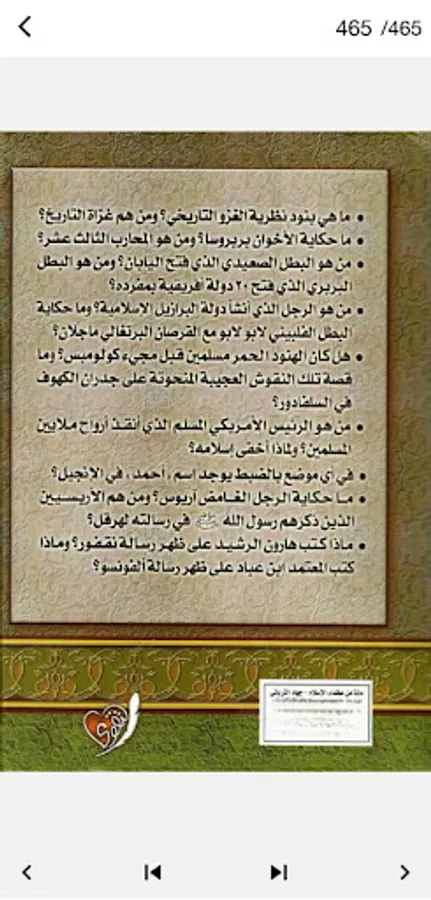 465 /465
• ما هي بنود نظرية الغزو التاريخي؟ ومن هم غزاة التاريخ؟
• ما حكاية الأخوان بربروسا؟ ومن هو المحارب الثالث عشر؟
• من هو البطل الصعيدي الذي فتح اليابان؟ ومن هو البطل
البربري الذي فتح ٢٠ دولة أفريقية بمفرده؟
• من هو الرجل الذي أنشأ دولة البرازيل الاسلامية؟ وما حكاية
البطل الفلبيني لابو لابو مع القرصان البرتغالي ماجلان؟
• هل كان الهنود الحمر مسلمين قبل مجيء كولومبس؟ وما
قصة تلك النقوش العجيبة المنحوتة على جدران الكهوف
في السلفادور؟
• من هو الرئيس الأمريكي المسلم الذي أنقذ أرواح ملايين
المسلمين؟ ولماذا أخفى إسلامه؟
• في أي موضع بالضبط يوجد اسم ، أحمد ، في الإنجيل؟
• ما حكاية الرجل الغامض أريوس؟ ومن هم الأريسيين
الذين ذكرهم رسول الله ﷺ في رسالته لهرقل؟
• ماذا كتب هارون الرشيد على ظهر رسالة نقفور؟ وماذا
كتب المعتمد ابن عباد على ظهر رسالة ألفونسو؟
مائة من عظماء الإسلام - جهاد الترباني